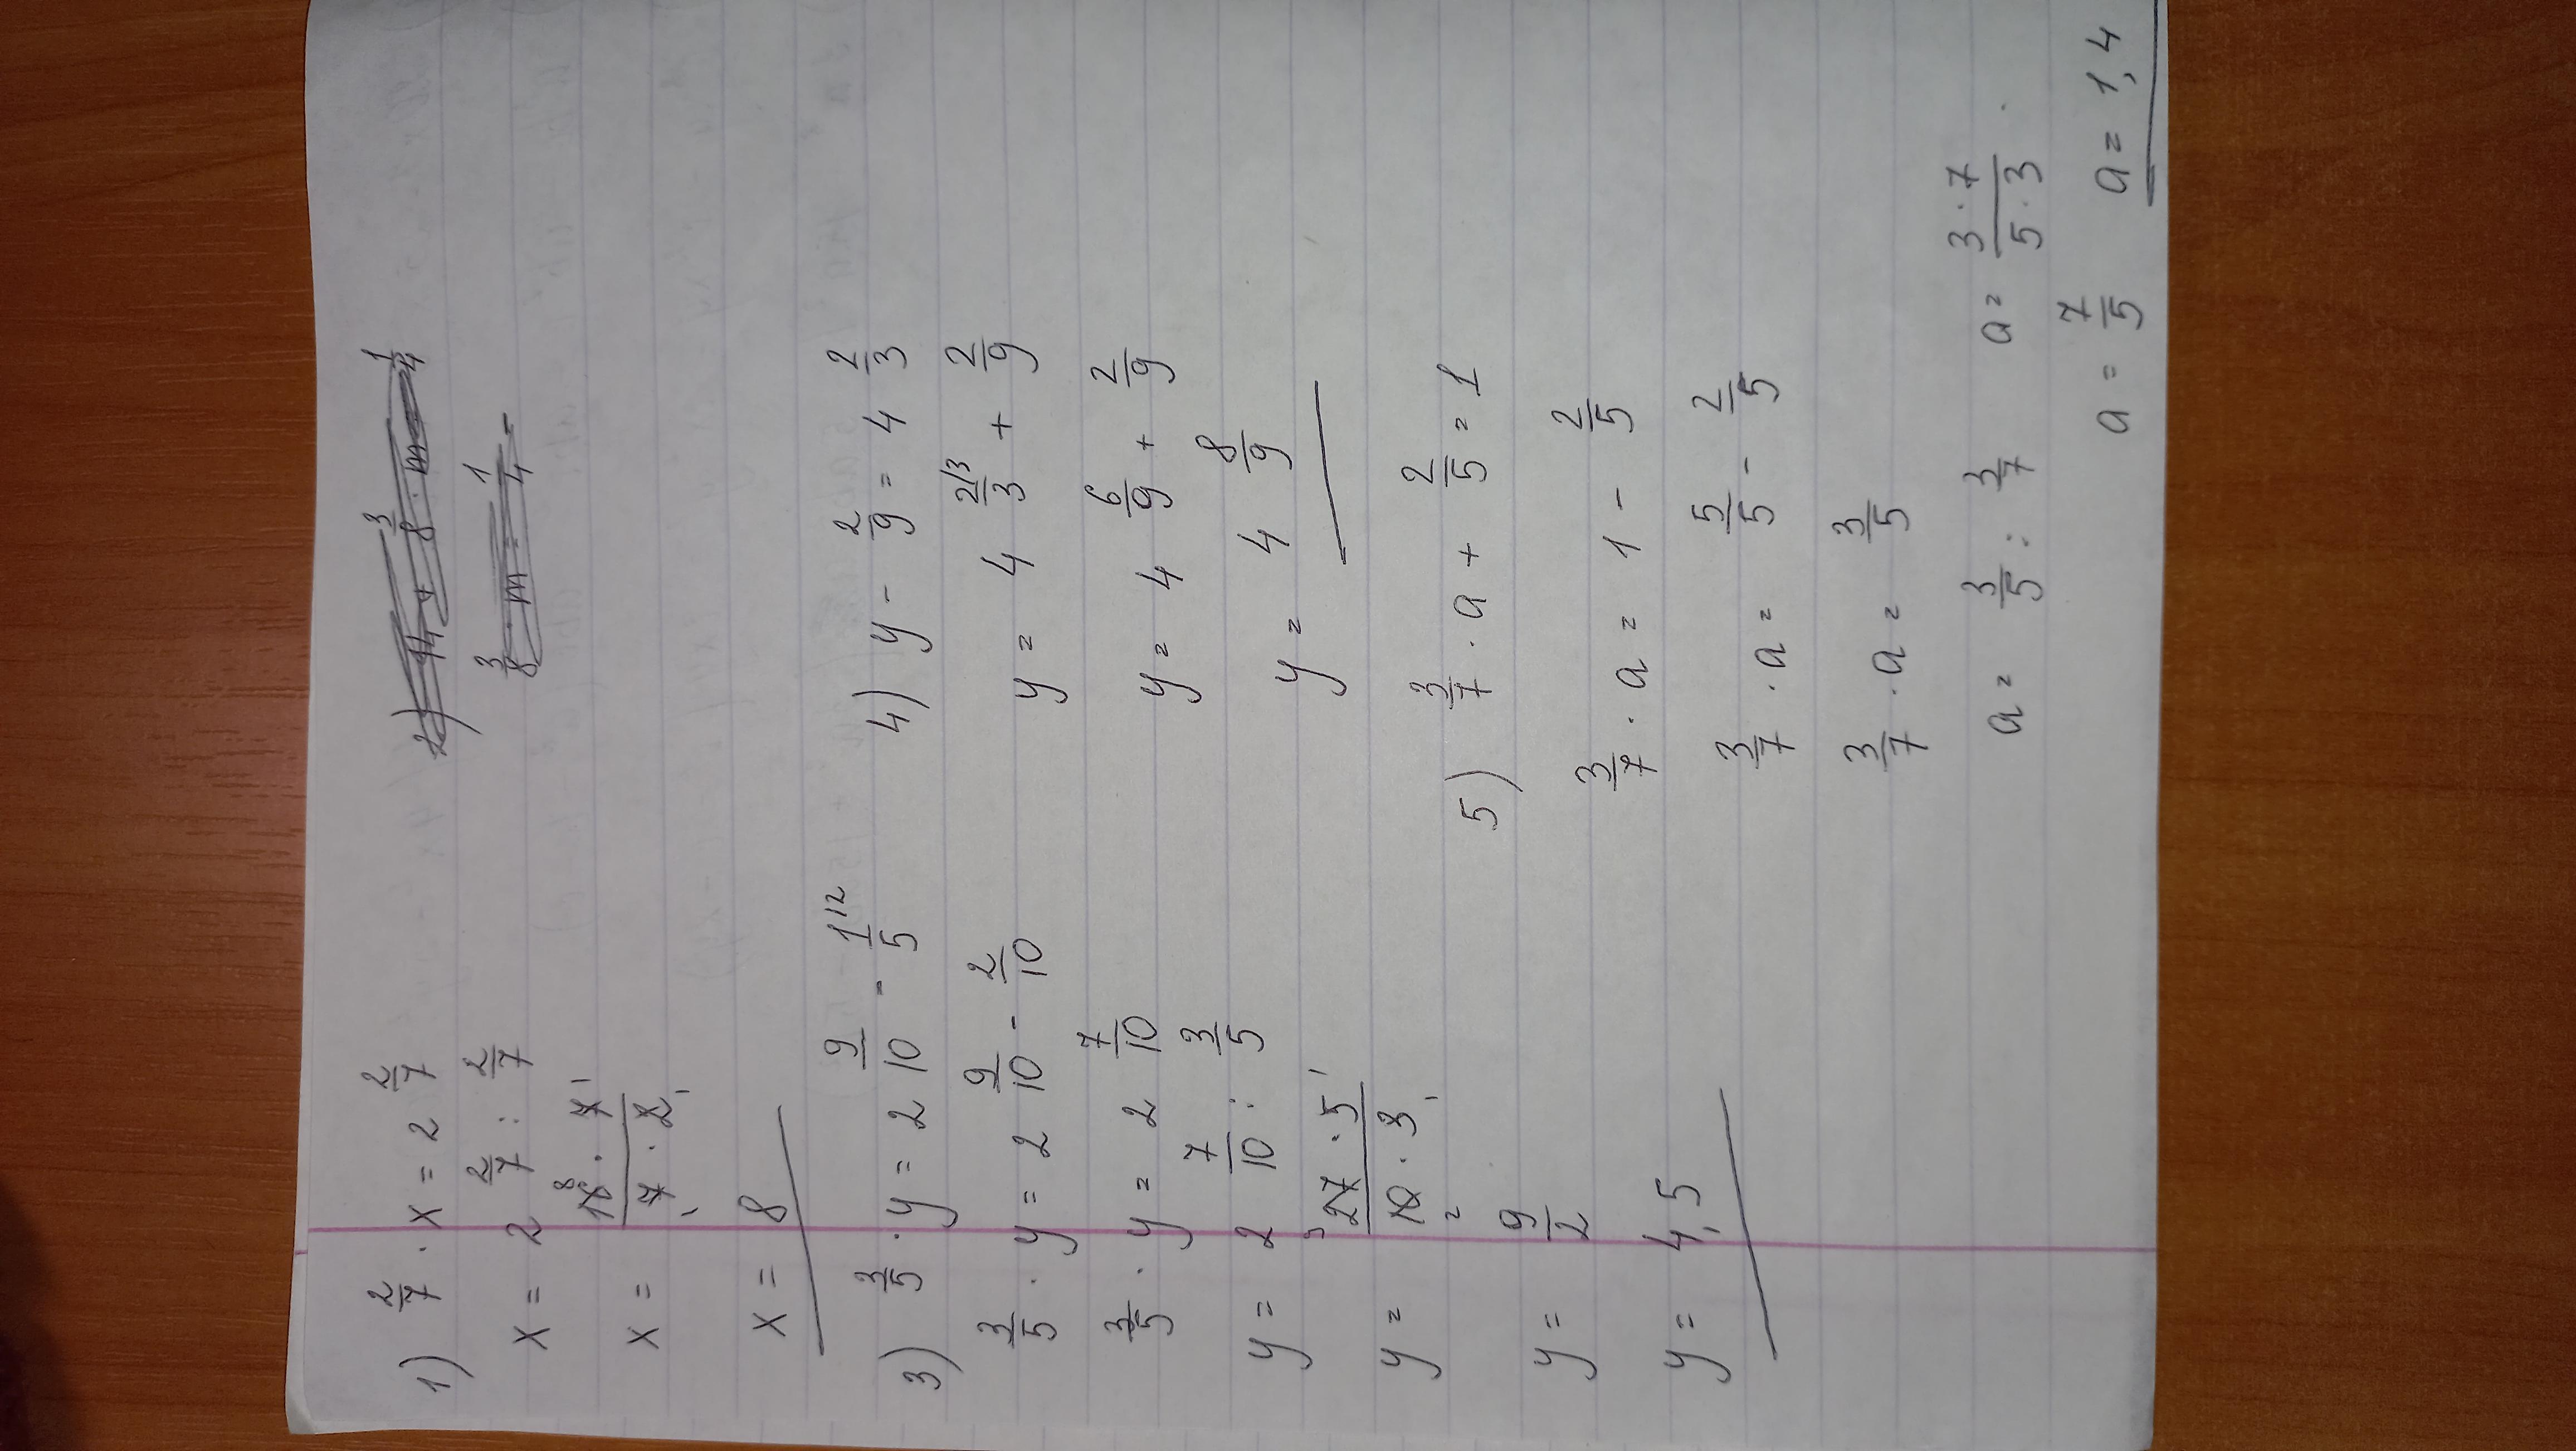 1) 2/7 · x = 2 2/7
x = 2 2/7 : 2/7
x = 16 · 7 / 7 · 2
x = 8
3/8 · m = 1/4
3) 3/5 · y = 2 9/10 - 1/5
3/5 · y = 2 9/10 - 2/10
3/5 · y = 2 7/10
y = 2 7/10 : 3/5
y = 27 · 5 / 10 · 3 =
y = 9/2
y = 4,5
4) y - 2/9 = 4 2/3
y = 4 2/3 + 2/9
y = 4 6/9 + 2/9
y = 4 8/9
5) 3/7 · a + 2/5 = 1
3/7 · a = 1 - 2/5
3/7 · a = 5/5 - 2/5
3/7 · a = 3/5
a = 3/5 : 3/7 a = 3 · 7 / 5 · 3
a = 7/5 a = 1,4